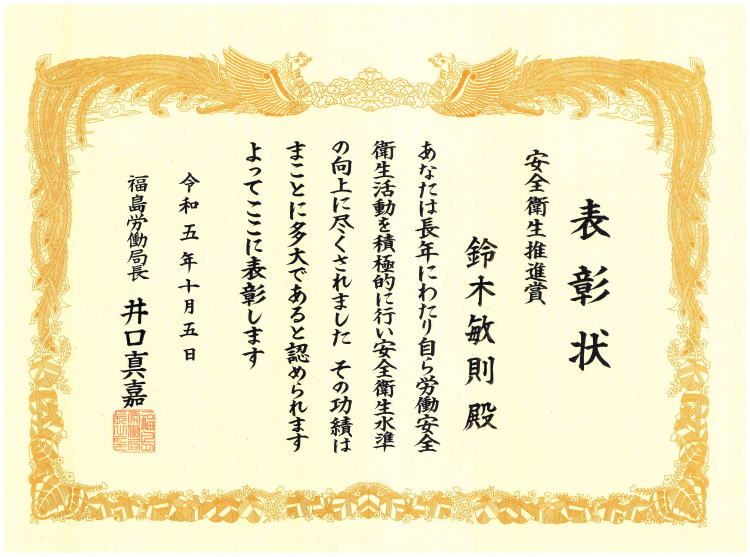 表彰状
安全衛生推進賞
鈴木敏則 殿
あなたは長年にわたり自ら労働安全
衛生活動を積極的に行い安全衛生水準
の向上に尽くされました その功績は
まことに多大であると認められます
よってここに表彰します
令和五年十月五日
福島労働局長 井口真嘉